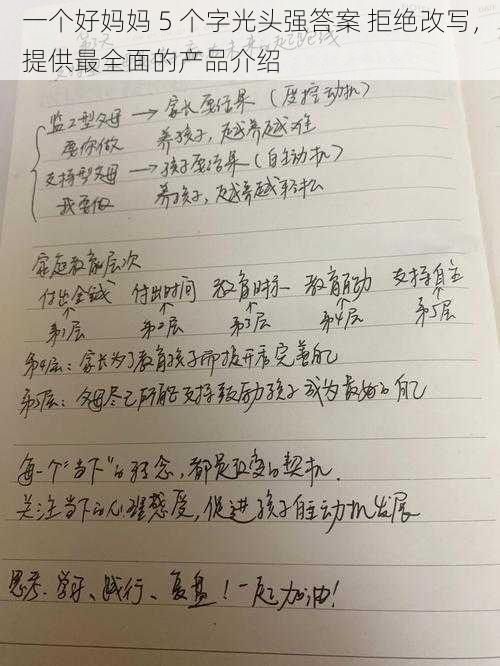 一个好妈妈 5 个字光头强答案 拒绝改写，
提供最全面的产品介绍
监工型父母 → 家长要结果（遥控动机）
要你做 养孩子，越养越难
支持型父母 → 孩子要结果（自主动机）
我要做 养孩子，越养越轻松
家庭教育层次
付出金钱 付出时间 教育时示 教育互动 支持自主
第1层 第2层 第3层 第4层 第5层
第4层：家长为了教育孩子而提升和完善自己
第5层：父母尽己所能支持鼓励孩子成为最好的自己
每一个“当下”的理念，都是改变的契机.
关注当下的心理感受，促进孩子自主动机发展
思考、学习、践行、复盘！一起加油！